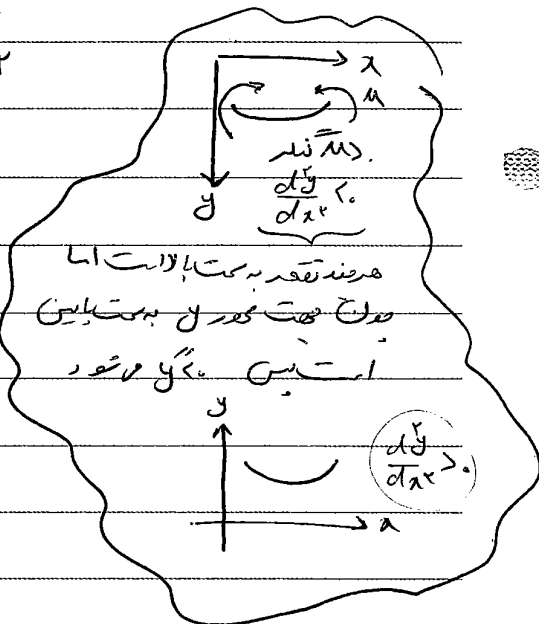 ۲
x
M
y
M > ۰
d²y/dx² < ۰
هرچند تقعر به سمت بالا است اما
چون جهت محور y به سمت پایین
است پس y'' < ۰ می شود
y
d²y/dx² > ۰
x